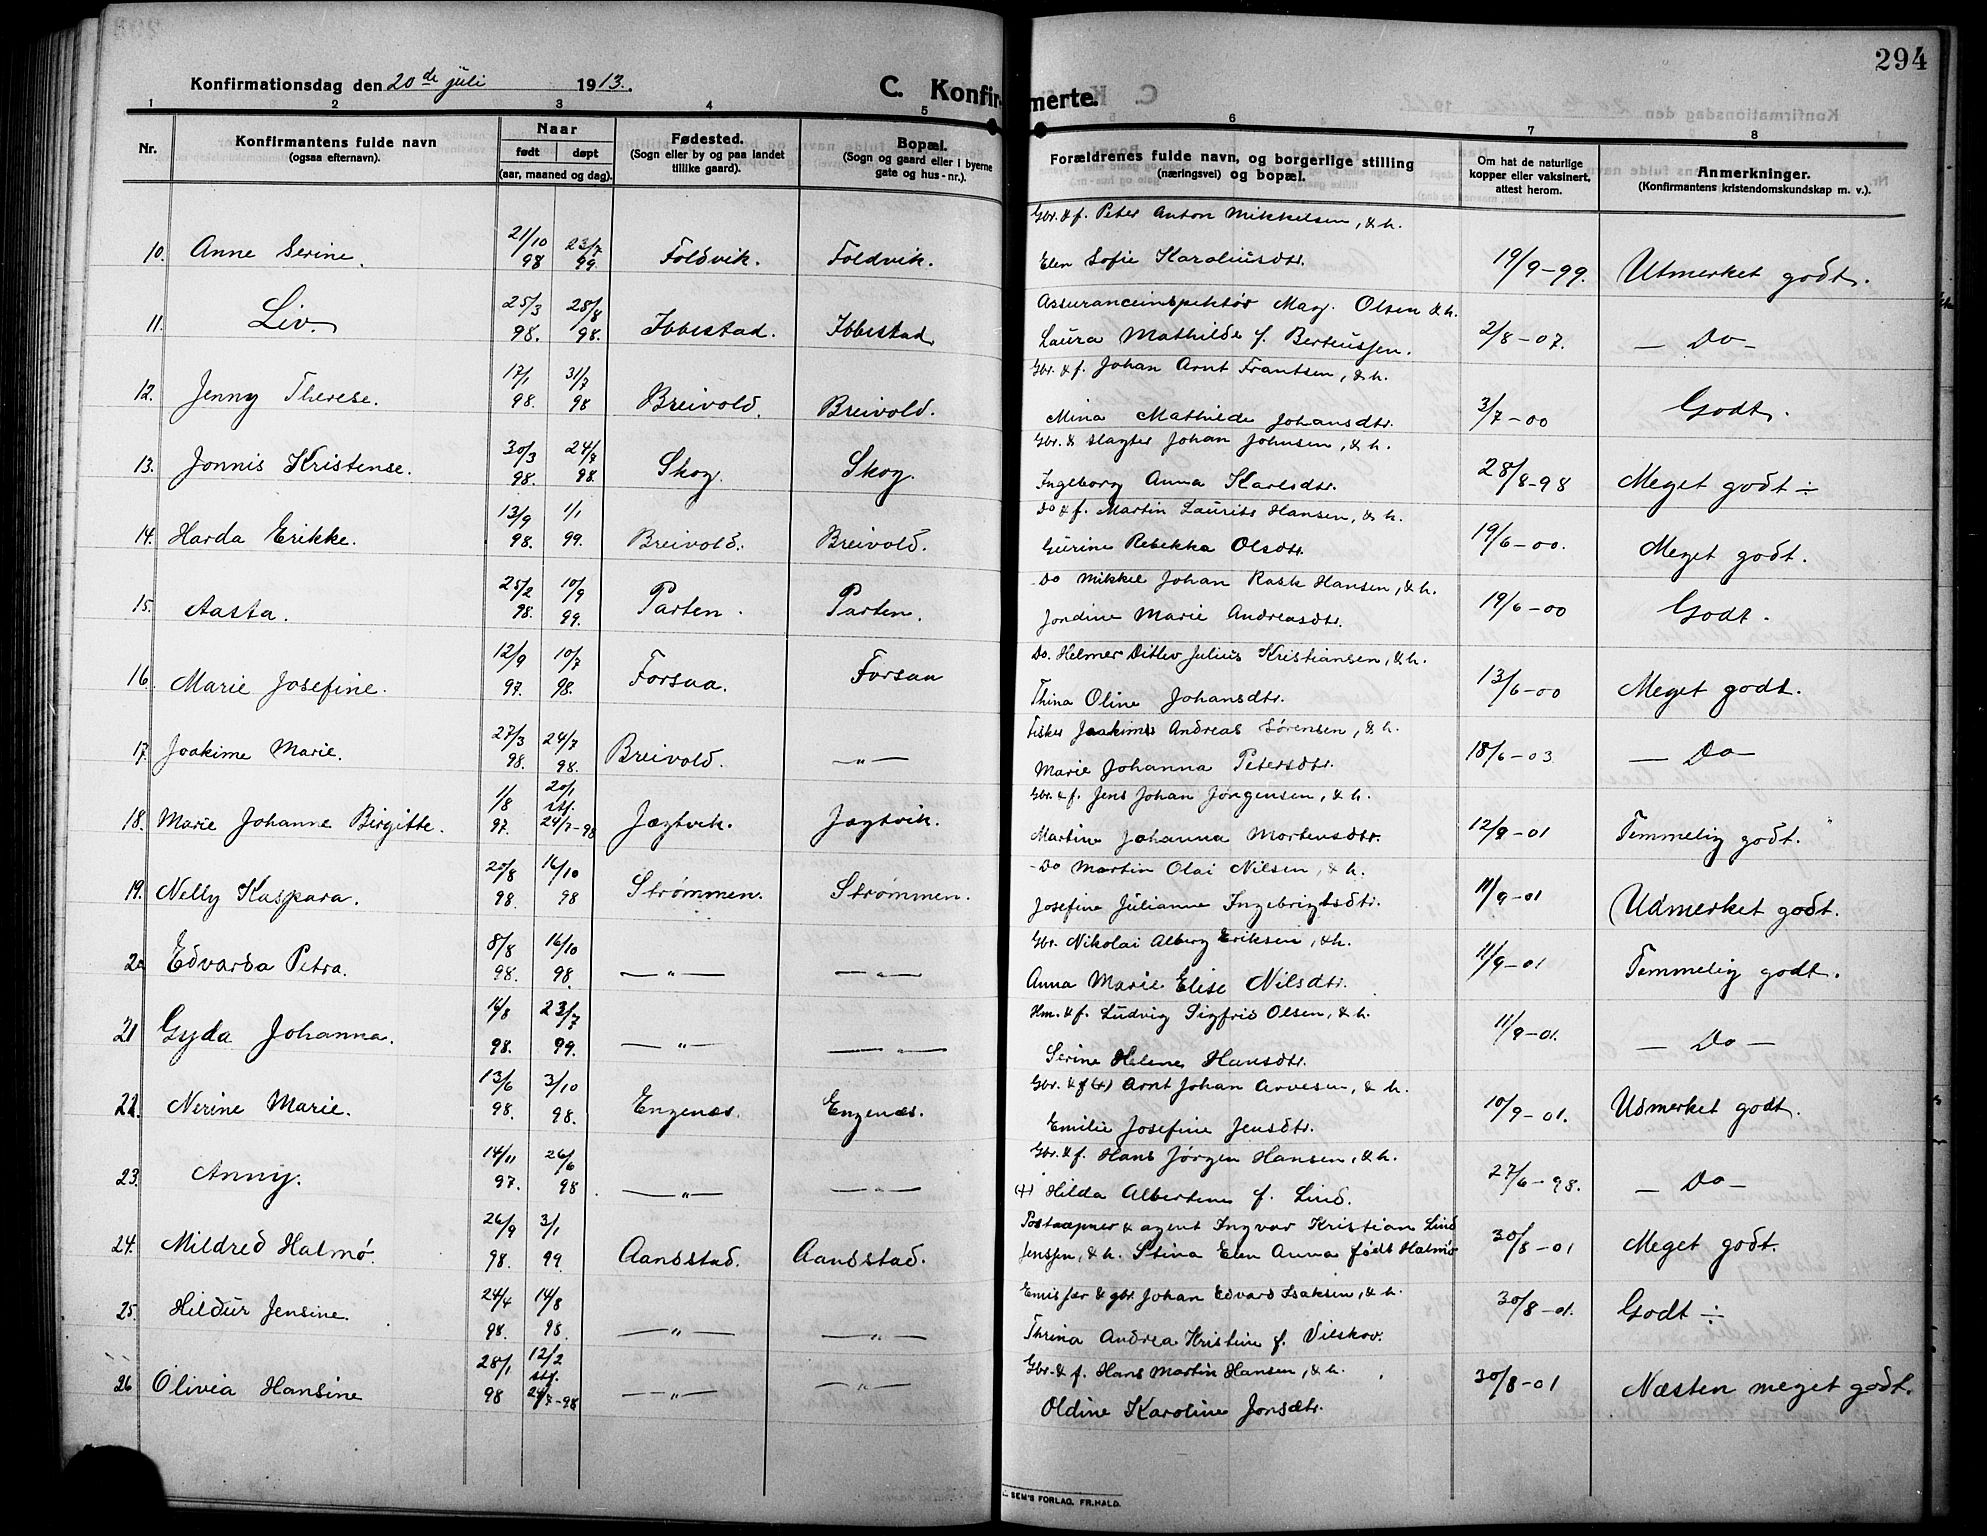 294
Konfirmationsdag den 20de juli 1913.
C. Konfirmerte.
1 2 3 4 5 6 7 8
Nr.
Konfirmantens fulde navn
(ogsaa efternavn).
Naar
født døpt
(aar, maaned og dag).
Fødested.
(Sogn eller by og paa landet
tillike gaard).
Bopæl.
(Sogn og gaard eller i byerne
gate og hus-nr.).
Forældrenes fulde navn, og borgerlige stilling
(næringsvei) og bopæl.
Om hat de naturlige
kopper eller vaksinert,
attest herom.
Anmerkninger.
(Konfirmantens kristendomskundskap m. v.).
Gbr. & f. Peter Anton Mikkelsen, & h.
10. Anne Serine. 21/10 98 23/7 99. Foldvik. Foldvik. Elen Sofie Karoliusdtr. 19/9-99. Utmerket godt.
Assuranceinspektør Mag. Olsen & h.
11. Liv. 25/3 98. 28/8 98. Ibbestad. Ibbestad. Laura Mathilde f. Berteussen. 2/8-07. — Do —
Gbr. & f. Johan Arnt Frantsen, & h.
12. Jenny Therese. 17/1 98. 31/7 98 Breivold. Breivold. Mina Mathilde Johansdtr. 3/7-00 Godt.
Gbr. & slagter Johan Johnsen, & h.
13. Jonnis Kristense. 30/3 98. 24/7 98. Skog. Skog. Ingeborg Anna Karlsdtr. 28/8-98 Meget godt ÷
Do & f. Martin Laurits Hansen, & h.
14. Harda Erikke. 13/9 98. 1/1 99. Breivold. Breivold. Gurine Rebekka Olsdtr. 19/6-00. Meget godt.
Do Mikkel Johan Rask Hansen, & h.
15. Aasta. 25/2 98. 10/9 99. Parten. Parten. Jordine Marie Andreasdtr. 19/6-00 Godt.
Do. Helmer Ditlev Julius Kristiansen, & h.
16. Marie Josefine. 12/9 97. 10/7 98. Forsaa. Forsaa Thina Oline Johansdtr. 13/6-00 Meget godt.
Fisker Joakims Andreas Sørensen, & h.
17. Joakime Marie. 27/3 98. 24/7 98. Breivold. —„— Marie Johanna Petersdtr. 18/6-03 — Do —
Gbr. & f. Jens Johan Jørgensen, & h.
18. Marie Johanne Birgitte. 1/8 97. 20/1 stf. 24/7-98 Jægtvik. Jægtvik. Martine Johanna Mortensdtr. 12/9-01 Temmelig godt.
Do Martin Olai Nilsen, & h.
19. Nelly Kaspara. 20/8 98 16/10 98 Strømmen. Strømmen. Josefine Julianne Ingebrigtsdtr. 11/9-01 Udmerket godt.
Gbr. Nikolai Alberg Eriksen, & h.
20 Edvarda Petra. 8/8 98. 16/10 98. —„— —„— Anna Marie Elise Nilsdtr. 11/9-01 Temmelig godt.
Hm. & f. Ludvig Sigfrid Olsen, & h.
21 Gyda Johanna. 14/8 98. 23/7 99. —„— —„— Serine Helene Hansdtr. 11/9-01. — Do —
Gbr. & f (+) Arnt Johan Arvesen, & h.
22. Nerine Marie. 13/6 98. 3/10 98. Engenæs. Engenæs. Emilie Josefine Jensdtr. 10/9-01. Udmerket godt.
Gbr. & f. Hans Jørgen Hansen, & h.
23. Anny. 14/11 97. 26/6 98. —„— —„— (+) Hilda Albertine f. Lind. 27/6-98. — Do —
Postaapner & agent Ingvar Kristian Lind
24. Mildred Halmø. 26/9 98. 3/1 99. Aandstad. Aandstad. Jenssen, & h. Stina Elen Anna født Halmø 30/8-01 Meget godt.
Emisjær & gbr. Johan Edvard Isaksen, & h.
25. Hildur Jensine. 24/4 98. 14/8 98. —„— —„— Thrina Andrea Kristine f. Vilskov. 30/8-01. Godt ÷
Gbr. & f. Hans Martin Hansen, & h.
26 Olivia Hansine 28/1 98 12/2 stf. 24/7-98 —„— —„— Oldine Karoline Jonsdtr. 30/8-01 Næsten meget godt.
SEM'S FORLAG. FR.HALD.